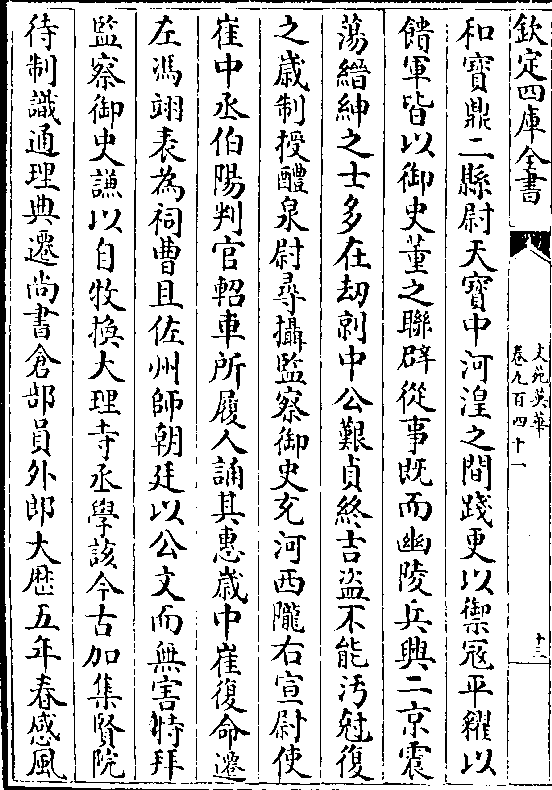 欽定四庫全書
文苑英華
卷九百四十一
十三
和寳鼎二縣尉天寳中河湟之間踐更以禦冦平糴以
饋軍皆以御史董之聯辟從事既而幽陵兵興二京震
蕩縉紳之士多在刧剥中公艱貞終吉盗不能汚尅復
之歳制授醴泉尉尋攝監察御史充河西隴右宣尉使
崔中丞伯陽判官軺車所履人誦其惠歳中崔復命遷
左馮翊表為祠曹且佐州師朝廷以公文而無害特拜
監察御史謙以自牧換大理寺丞學該今古加集賢院
待制識通理典遷尚書倉部員外郎大歴五年春感風